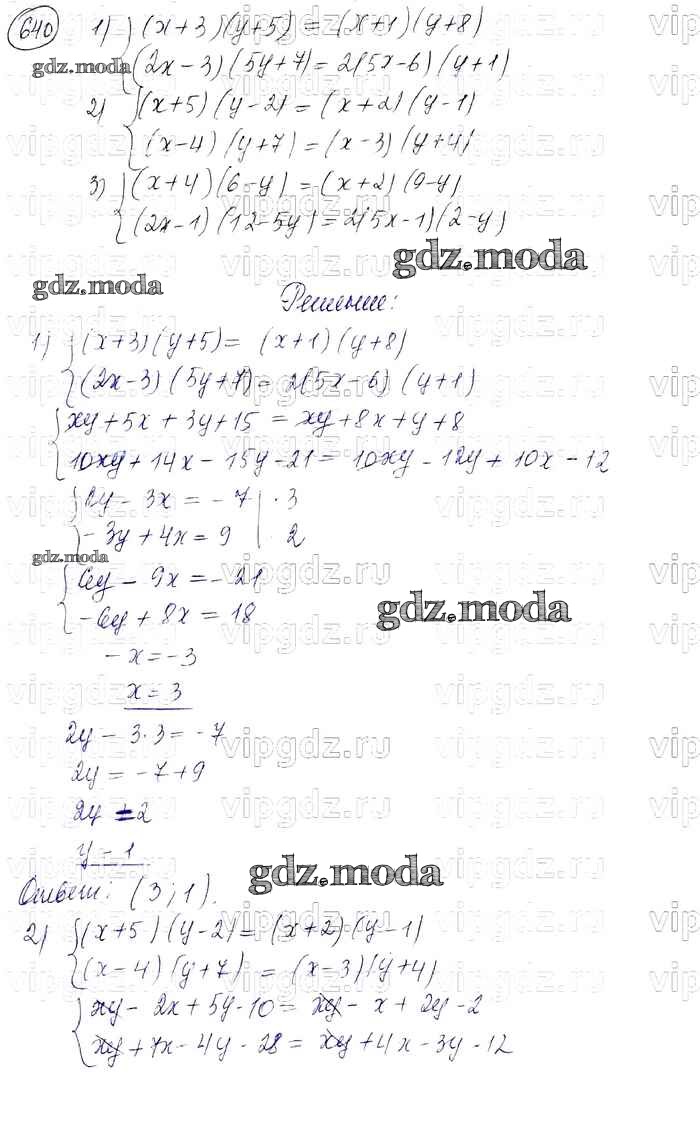 640 1) { (x+3)(y+5) = (x+1)(y+8)
(2x-3)(5y+7) = 2(5x-6)(y+1)
gdz.moda
2) { (x+5)(y-2) = (x+2)(y-1)
(x-4)(y+7) = (x-3)(y+4)
3) { (x+4)(6-y) = (x+2)(9-y)
(2x-1)(12-5y) = 2(5x-1)(2-y)
gdz.moda
gdz.moda
Решение:
1) { (x+3)(y+5) = (x+1)(y+8)
(2x-3)(5y+7) = 2(5x-6)(y+1)
{ xy + 5x + 3y + 15 = xy + 8x + y + 8
10xy + 14x - 15y - 21 = 10xy - 12y + 10x - 12
{ 2y - 3x = -7 | · 3
-3y + 4x = 9 | · 2
gdz.moda
{ 6y - 9x = -21
-6y + 8x = 18
gdz.moda
-x = -3
x = 3
2y - 3·3 = -7
2y = -7+9
2y = 2
y = 1
gdz.moda
Ответ: (3; 1).
2) { (x+5)(y-2) = (x+2)(y-1)
(x-4)(y+7) = (x-3)(y+4)
{ xy - 2x + 5y - 10 = xy - x + 2y - 2
xy + 7x - 4y - 28 = xy + 4x - 3y - 12
vipgdz.ru